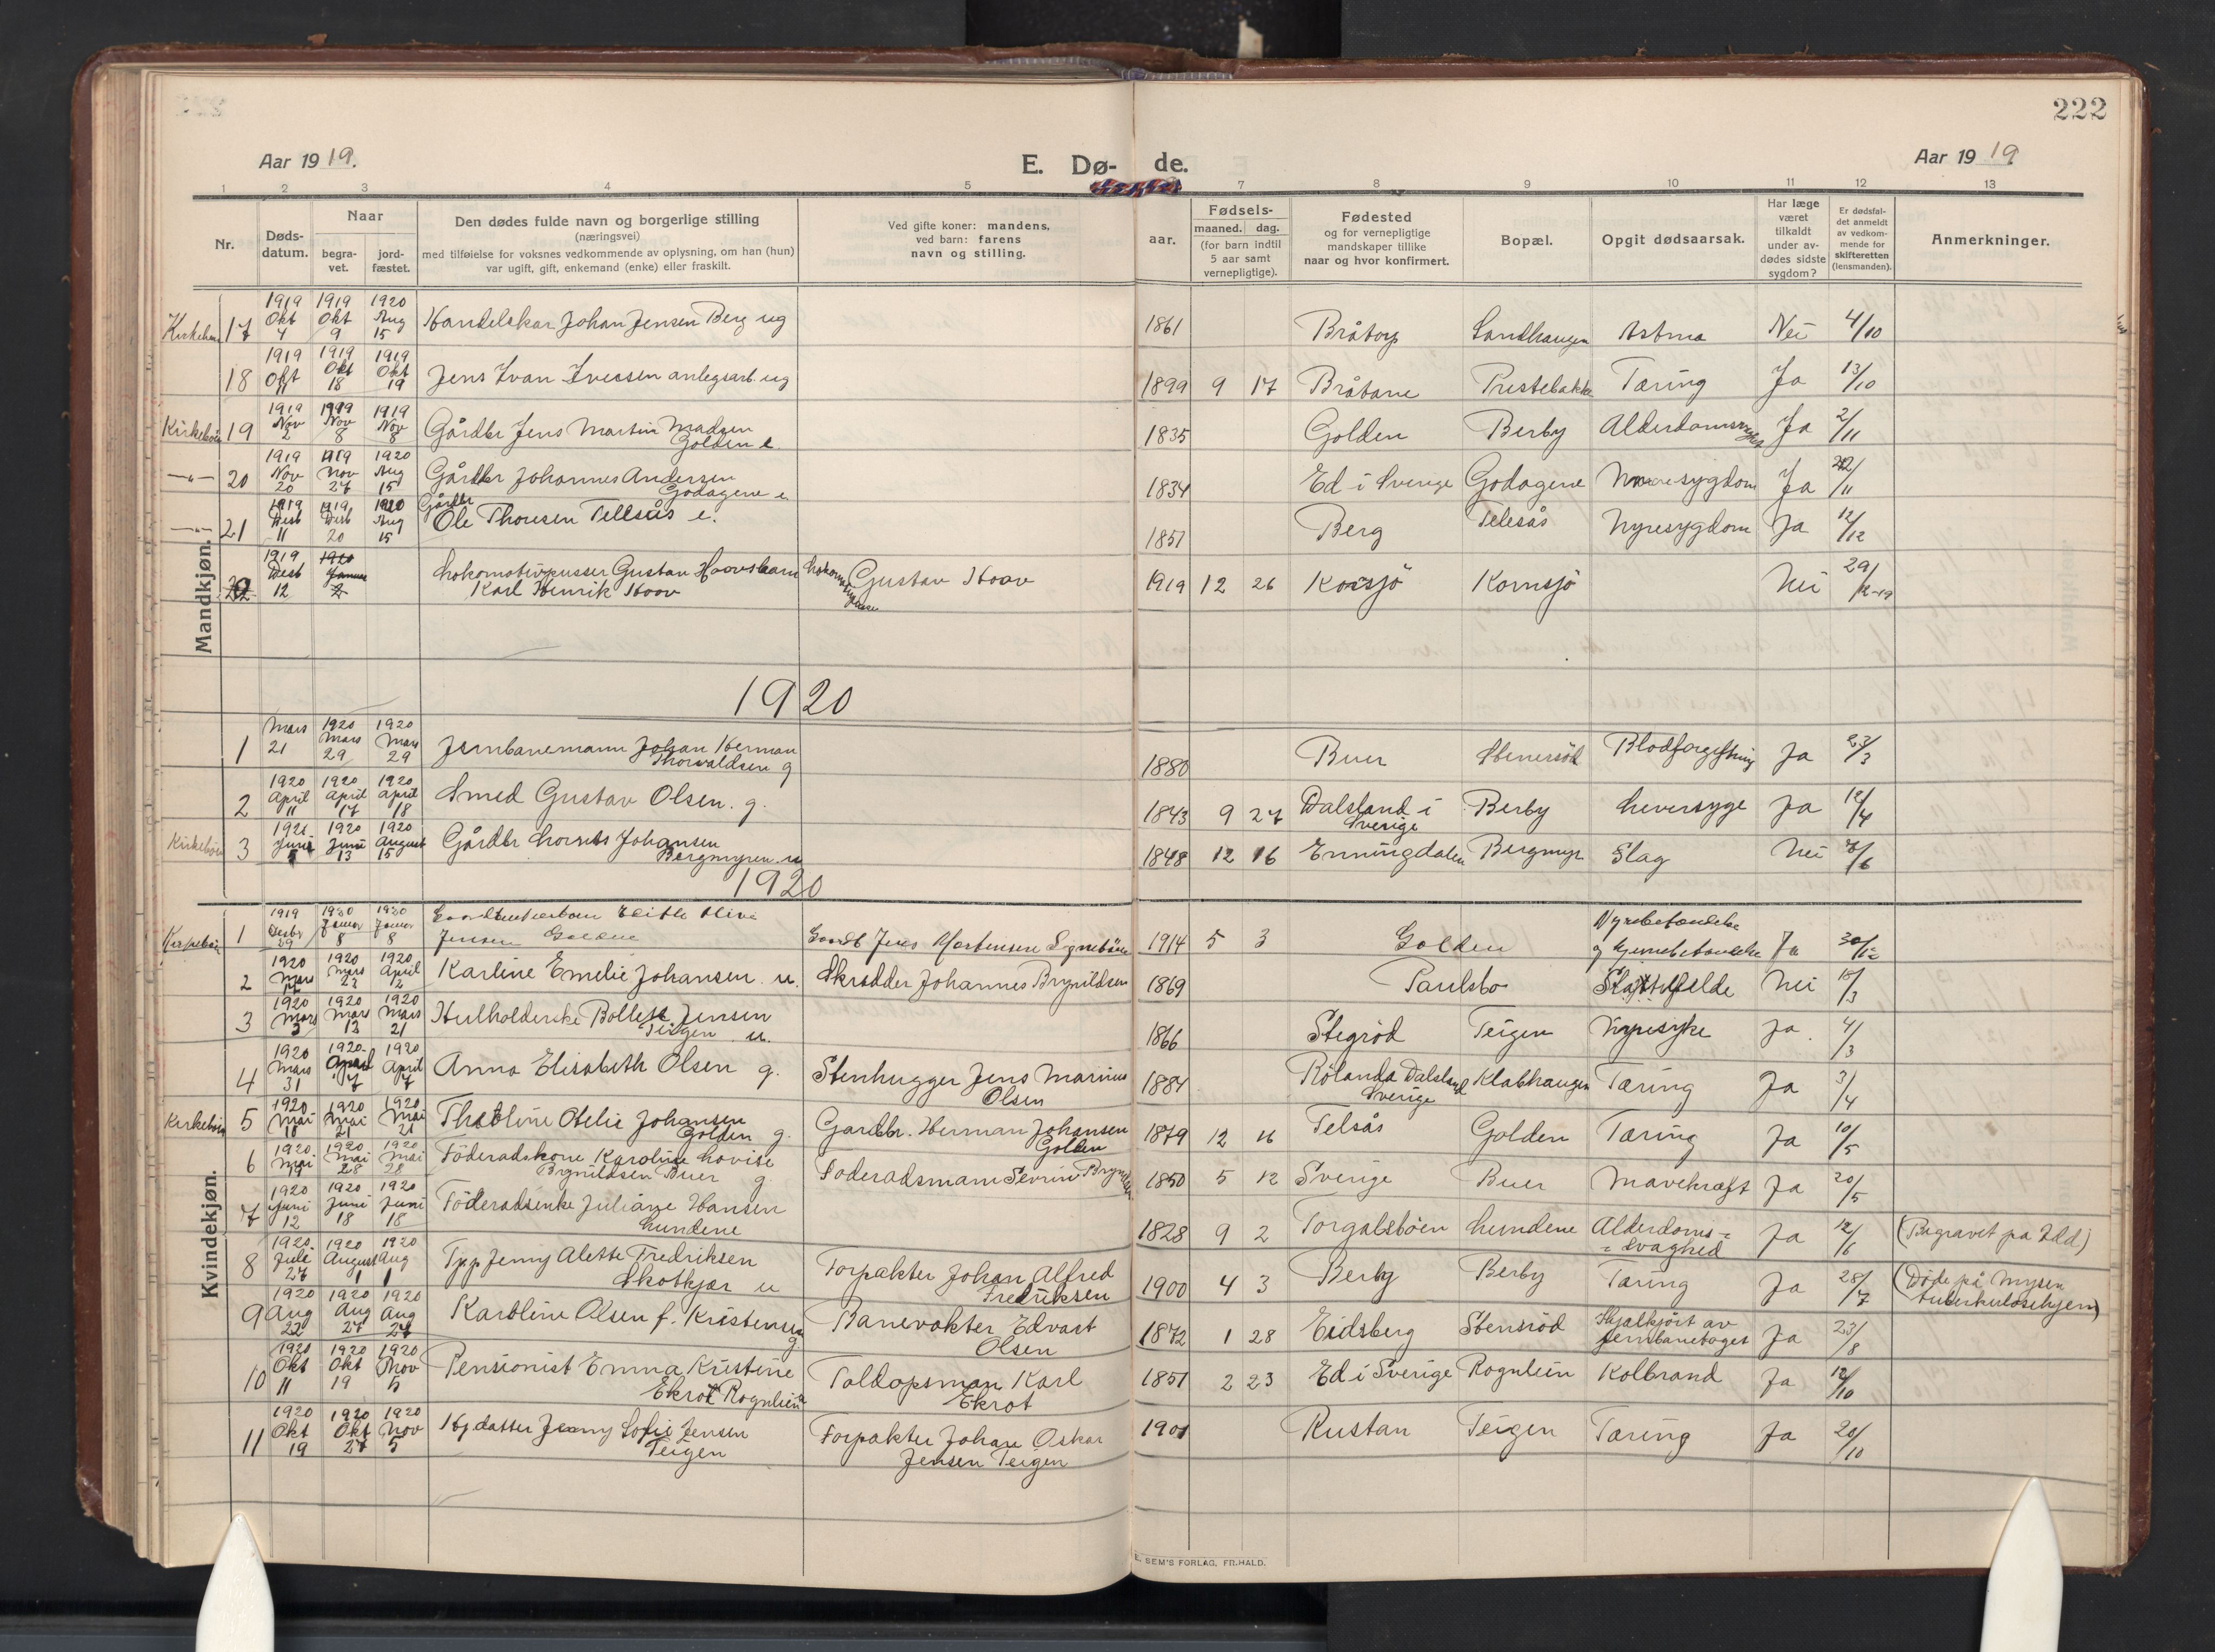 222
Aar 1919.
E. Dø- de.
Aar 1919
1 2 3 4 5 7 8 9 10 11 12 13
Nr.
Døds-
datum.
Naar
begra-
vet.
jord-
fæstet.
Den dødes fulde navn og borgerlige stilling
(næringsvei)
med tilføielse for voksnes vedkommende av oplysning, om han (hun)
var ugift, gift, enkemand (enke) eller fraskilt.
Ved gifte koner: mandens,
ved barn: farens
navn og stilling.
Fødsels-
aar.
maaned. dag.
(for barn indtil
5 aar samt
vernepligtige).
Fødested
og for vernepligtige
mandskaper tillike
naar og hvor konfirmert.
Bopæl.
Opgit dødsaarsak.
Har læge
været
tilkaldt
under av-
dødes sidste
sygdom?
Er dødsfal-
det anmeldt
av vedkom-
mende for
skifteretten
(lensmanden).
Anmerkninger.
Mandkjøn.
17 1919 Okt 4 1919 Okt 9 1920 Aug 15 Handelskar Johan Jensen Berg ug 1861 Bråtorp Sandhaugen Astma Nei 4/10
18 1919 Okt 11 1919 Okt 18 1919 Okt 19 Jens Ivan Iversen anlegsarb. ug 1899 9 17 Bråtane Prestebakke Tæring Ja 13/10
Kirkebøn 19 1919 Nov 2 1919 Nov 8 1919 Nov 8 Gårdbr Jens Martin Madsen
Golden e. 1835 Golden Berby Ja 2/11
—"— 20 1919 Nov 20 1919 Nov 27 1920 Aug 15 Gårdbr Johannes Andersen
Godagene e 1834 Ed i Sverige Godagene Ja 22/11
—"— 21 1919 Desb 11 1919 Desb 20 1920 Aug 15 Gårdbr
Ole Thoresen Tellsås e. 1851 Berg Telesås Nyresygdom Ja 12/12
22 1919 Desb 12 1920 Januar 2 Lokomotivpusser Gustav Hoovs barn
Karl Henrik Hoov Gustav Hoov 1919 12 26 Korsjö Kornsjö Nei 29/12-19
1920
1 Mars 21 1920 Mars 29 1920 Mars 29 Jernbanemann Johan Herman
Thorvaldsen g 1880 Buer Stenersöd Blodforgiftning Ja 23/3
2 1920 April 11 1920 April 17 1920 April 18 Smed Gustav Olsen. g. 1843 9 27 Dalsland i
Sverige Berby Leversyge Ja 12/4
Kirkebøn 3 1920 Juni 1920 Juni 13 1920 August 15 Gårdbr Lorents Johansen
Bergmyren u 1848 12 16 Enningdalen Bergmyr Slag Nei /6
1920
Kvindekjøn.
1 1919 Desbr 29 1920 Januar 8 1920 Januar 8 Edith Olive
Jensen Golden Gaardb Jens Mortensen 1914 5 3 Golden Nyrebetændelse
og hjernebetændelse Ja 30/12
2 1920 Mars 1920 Mars 1920 April 12 Karline Emelie Johansen u. Skrædder Johannes Brynildsen 1869 Paulsbo Nei 18/3
3 1920 Mars 3 1920 Mars 13 1920 Mars 21 Hulholderske Bollette Jensen
Teigen u. 1866 Stegröd Teigen Nyresyke Ja. 4/3
4 1920 Mars 31 1920 April 7 1920 April 7 Anna Elisabeth Olsen g. Stenhugger Jens Marius
Olsen 1884 Rölanda Dalsland
Sverige Klabhaugen Tæring Ja 3/4
Kirkebøn 5 1920 Mai 1920 Mai 21 1920 Mai 21 Otelie Johansen
Golden g. Gardbr. Herman Johansen
Golden 1879 12 16 Telsås Golden Tæring Ja 10/5
6 1920 Mai 19 1920 Mai 28 1920 Mai 28 Föderadskone Karoline Lovise
Brynildsen Buer g Föderadsmann Sevrin 1850 5 12 Sverige Buer Mavekræft Ja 20/5
7 1920 Juni 12 1920 Juni 18 1920 Juni 18 Föderadsenke Juliane Hansen
Lundene 1828 9 2 Torgalsböen Lundene Alderdoms=
=svaghed Ja 12/6 (Begravet på Idd)
8 1920 Juli 27 1920 August 1 1920 Aug 1 Jenny Alette Fredriksen
Skotkjær u Forpakter Johan Alfred
Fredriksen 1900 4 3 Berby Berby Tæring Ja 28/7 (Döde på Mysen
tuberkulosehjem)
9 1920 Aug 22 1920 Aug 27 1920 Aug 27 Karoline Olsen f. Kristensen
g Banevokter Edvart
Olsen 1872 1 28 Eidsberg Stensröd Ihjælkjört av
jernbanetoget Ja 23/8
10 1920 Okt 11 1920 Okt 19 1920 Nov 5 Pensionist Emma Kristine
Ekrot Rognlien Toldopsman Karl
Ekrot 1851 2 23 Ed i Sverige Rognlien Kolbrand Ja 12/10
11 1920 Okt 19 1920 Okt 27 1920 Nov 5 Jenny Sofie Jensen
Teigen Forpakter Johan Oskar
Jensen Teigen 1901 Rustan Teigen Tæring Ja 20/10
E. SEM'S FORLAG, FR.HALD.